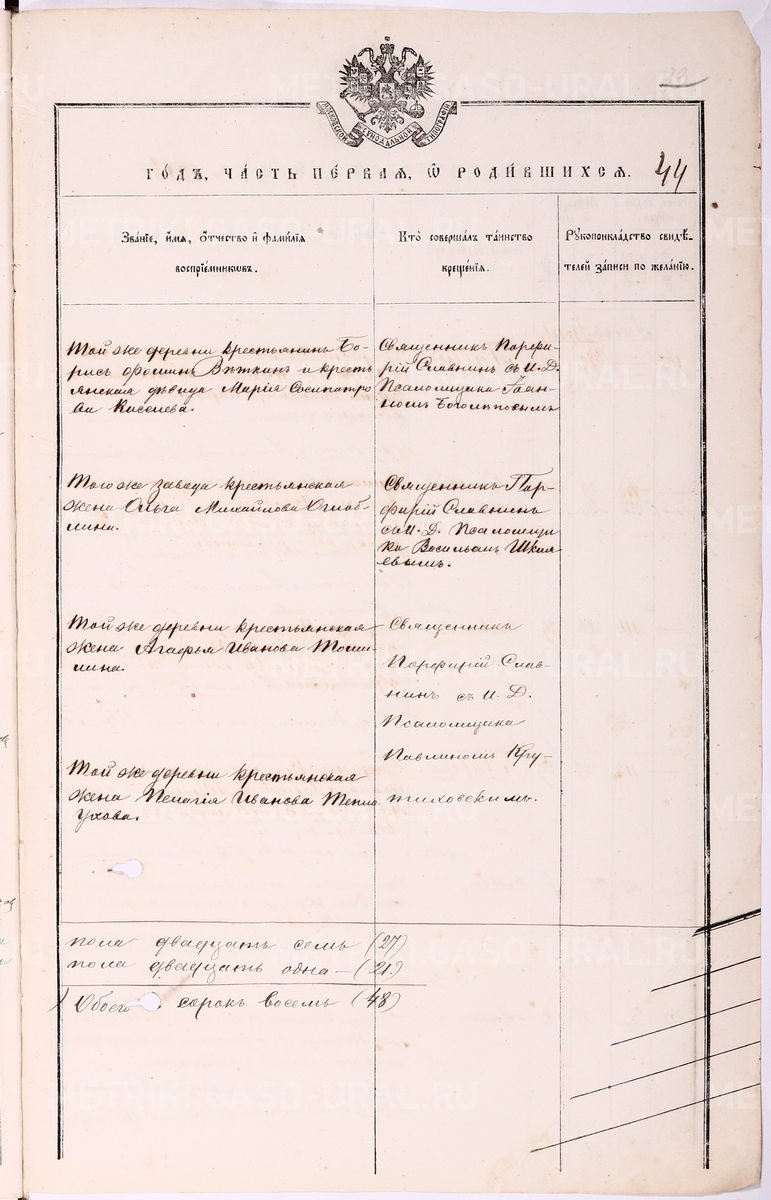 МОСКОВСКОЙ СѴНОДАЛЬНОЙ ТИПОГРАФІИ
ГО́ДЪ, ЧА́СТЬ ПЕ́РВАЯ, Ѡ РОДИ́ВШИХСЯ.
44
Зва́нїе, и҆́мя, ѻ҆́тчество и҆ фами́лїя
воспрїе́мниковъ.
Кто̀ соверша́лъ та́инство
креще́нїя.
Рꙋкоприкла́дство свидѣ́-
телей за́писи по жела́нїю.
Той же деревни крестьянинъ Бо-
рисъ Фоминъ Вяткинъ и кресть
янская дѣвица Марія Сосипатро
ва Киселева.
Священникъ Порфи-
рій Славнинъ съ И. Д.
Псаломщика Іоан-
номъ Боголѣповымъ
Того же завода крестьянская
жена Ольга Михайлова Оглоб-
лина.
Священникъ Пор-
фирій Славнинъ
съ И. Д. Псаломщи
ка Васильемъ Шкля
евымъ.
Той же деревни крестьянская
жена Агафья Иванова
Священникъ
Порфирій Слав-
нинъ съ И. Д.
Псаломщика
Павлиномъ Кру-
тиховскимъ.
Той же деревни крестьянская
жена Пелагія Иванова Тепло
ухова.
пола двадцать семь (27)
пола двадцать одна — (21)
Обоего сорокъ восемь (48)